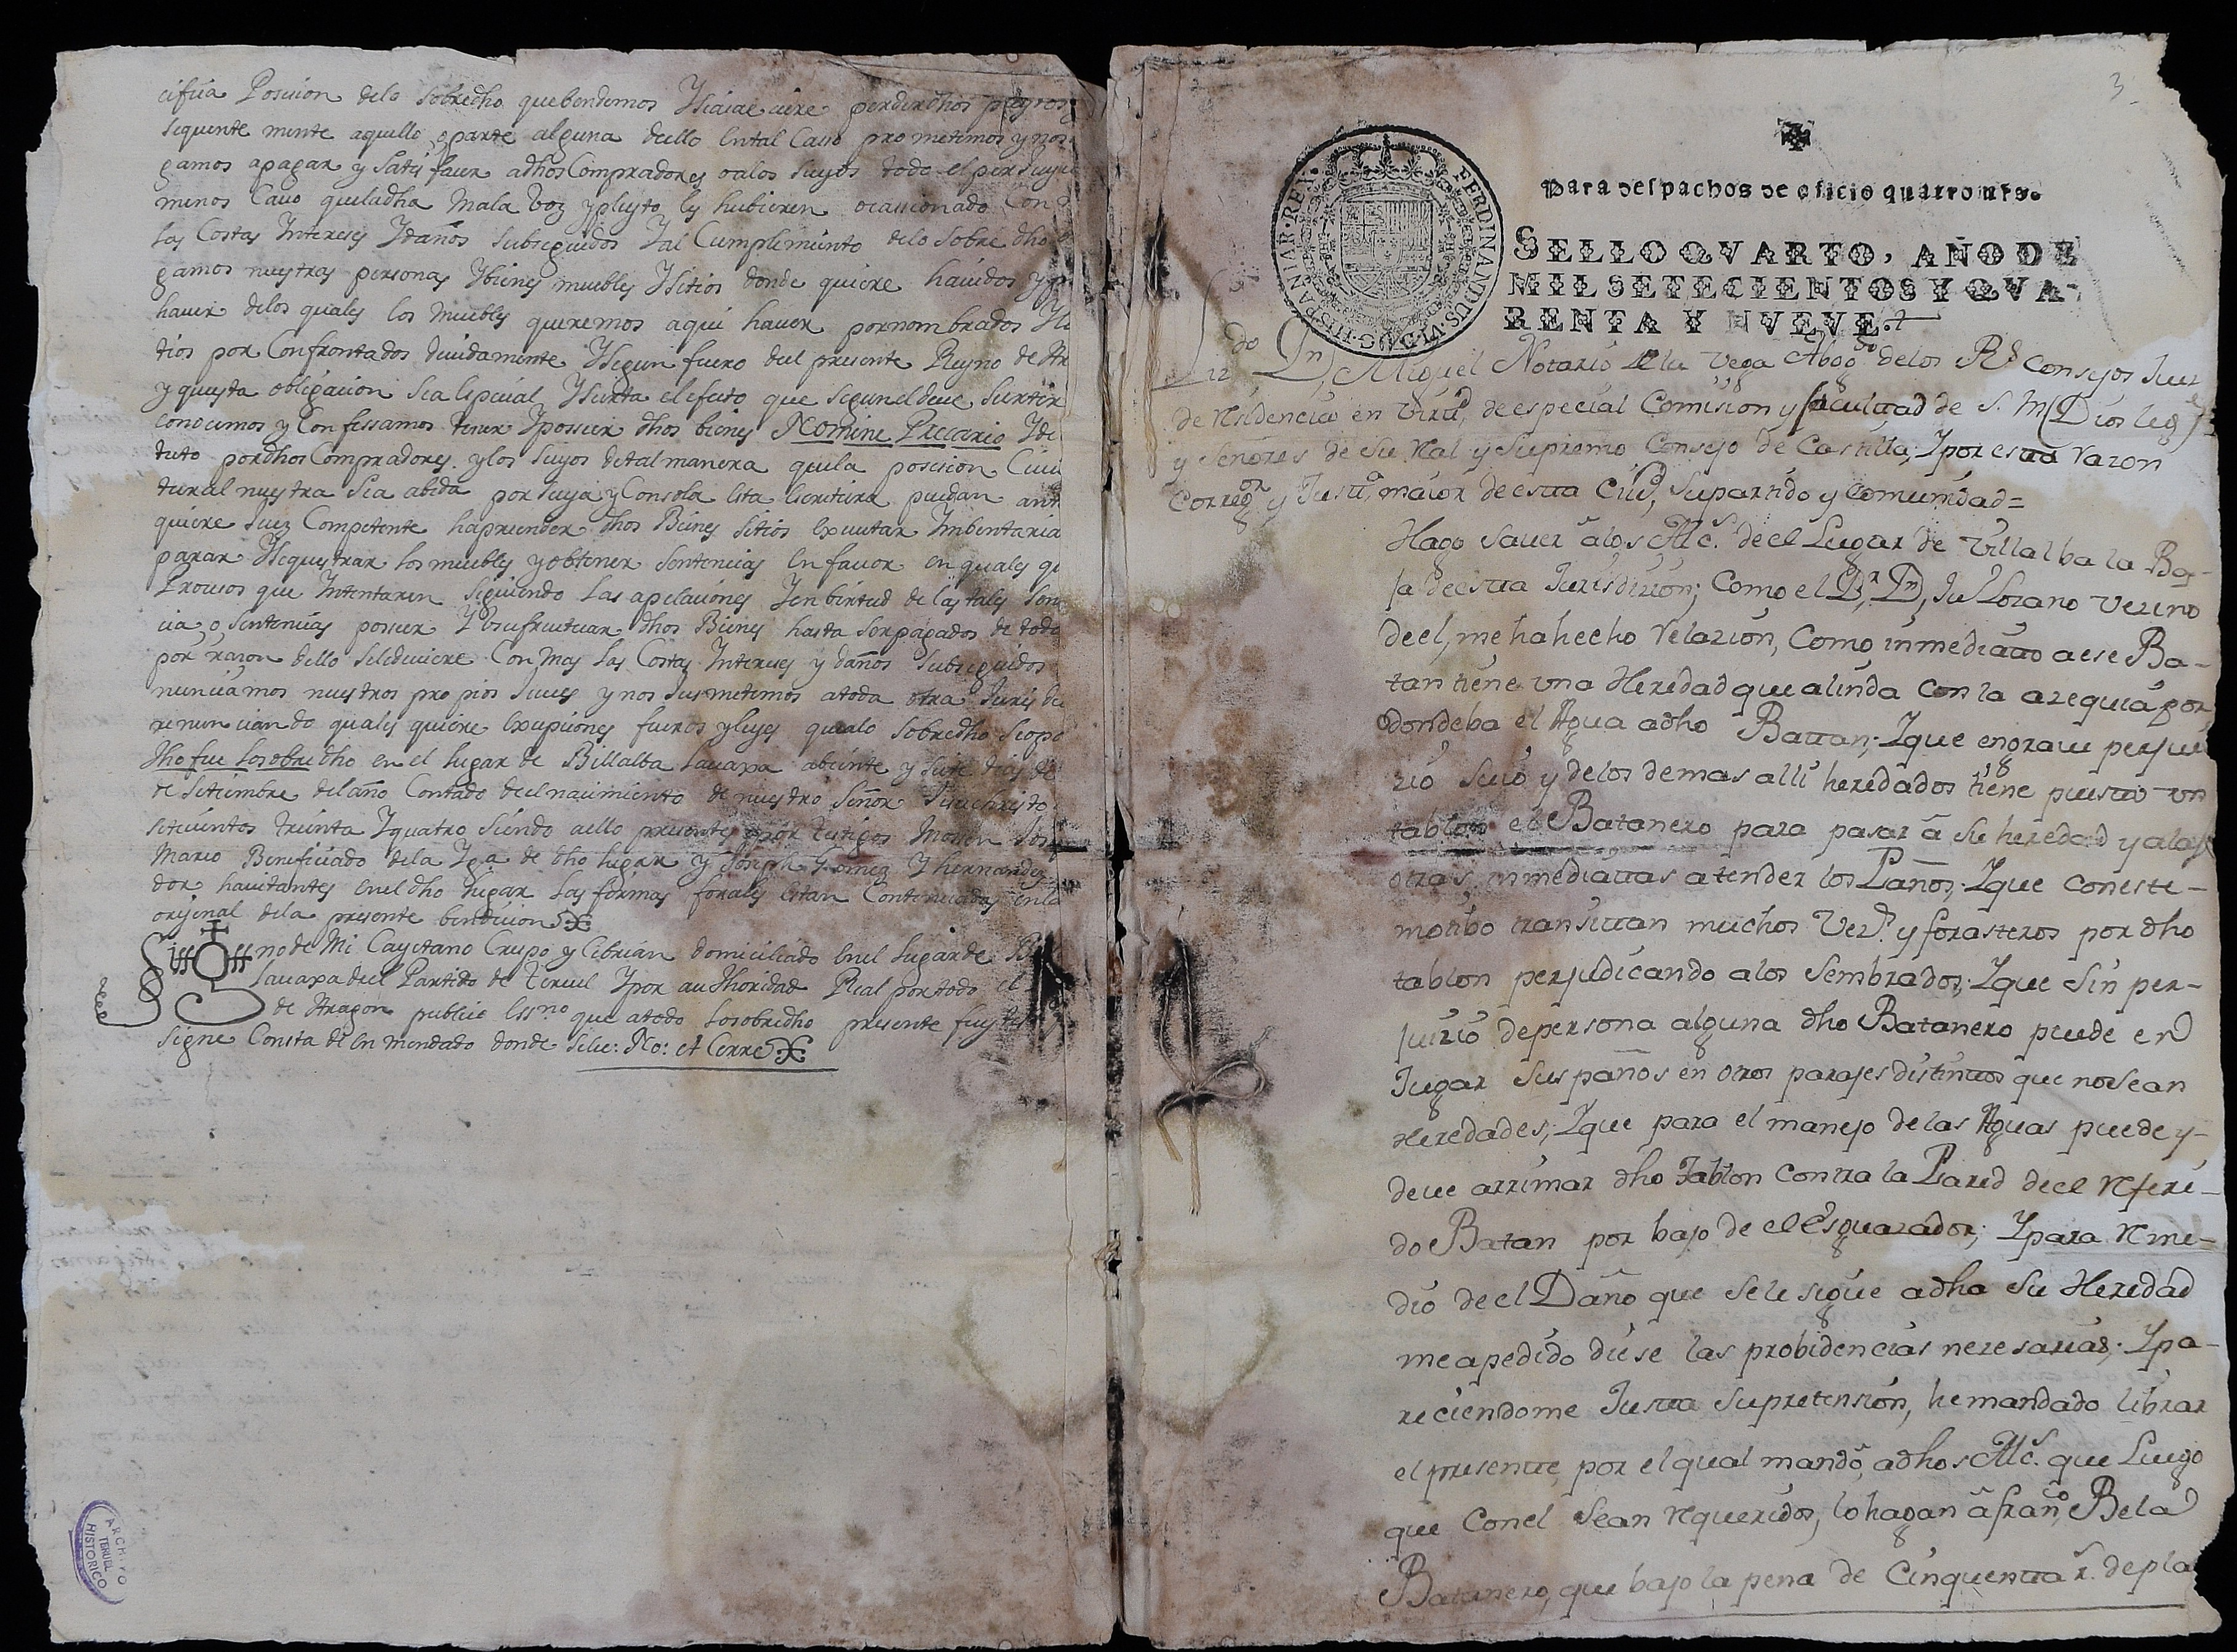 cifica Posicion delo sobredho quebendemos Y siaiaeciere perderdhos pregros
siquente mente aquello, o parte alguna dello Ental Caso prometimos y nos
gamos apagar y satisfacer adhos Compradores oalos suyos todo el perjuyci
menos Cavo queladha Mala Voz ypleyto les hubieren ocassionado Con
las Costas Intereses Ydaños subseguidos Yal Cumplimiento delo sobre dho
gamos nuestras personas Ybienes muebles Ysitios donde quiere havidos y p
haver delos quales los Muebles queremos aqui haver pornombrados Y Si
tios por Confrontados devidamente Ysegun fuero del presente Reyno de Ar
y questa obligacion sea especial Ysurta el efecto que segunel deve surtir
conocemos y Confessamos tener Yposseer dhos bienes Nomine Precario Yde
tuto pordhos Compradores y los suyos detal manera quela posecion Civi
tural nuestra sea abida por suya y Consola esta Escritura puedan ant
quiere Juez Competente haprender dhos Bienes sitios executar Imbentaria
parar Ysequestrar los muebles yobtener sentencias En favor en quales qu
Procesos que Intentaren siguiendo las apelaciones Yen birtud de las tales sen
cia o sentencias posseer Y Vsufructuar dhos Bienes hasta ser pagados de todo
por razon dello seledeviere Con Mas las Costas Intereses y daños subseguidos
nunciamos nuestros propios Jueces y nos susmetimos atoda otra Juris di
renunciando quales quiere excepciones fueros yleyes quealo sobredho seopo
Dho fue losobredho en el lugar de Billalba Lavaxa abeinte y siete dias de
de Setiembre del año Contado del nacimiento de nuestro Señor Jesuchristo
setecientos treinta Yquatro siendo aello presentes por testigos Mosen Jos
Marco Beneficiado dela Yga de dho lugar y Joseph Gomez Y hernandez
dor havitantes enel dho lugar las firmas forales estan Continuadas enla
orijinal dela presente bendicion
Sig no de Mi Cayetano Crespo y Cibrian domiciliado enel lugar de B
Lavaxa del Partido de Teruel Ypor authoridad Real portodo el
de Aragon publico Essno que atodo losobredho presente fuy
signe Consta de en mendado donde selee: No: et Cerre
ARCHIVO
HISTORICO
TERUEL
3
Para despachos de oficio quatro mrs.
FERDINANDUS·VI·D·G·HISPANIAR·REX
SELLO QVARTO, AÑO DE
MIL SETECIENTOS Y QVA-
RENTA Y NVEVE.
Lizdo Dn Miguel Notario de la Vega Abogdo delos Rs Consejos Juez
de residencia en Virtd de especial Comision y facultad de S. M (Dios leg
y Señores de su Real y Supremo Consejo de Castilla, Y por esta razon
Corregor y Justa maior de esta Ciud, su partido y Comunidad=
Hago saver âlos Alcs. de el Lugar de Villalba la Ba-
ja de esta Jurisdizion; Como el Dr. Dn, Ju Lozano vezino
de el, me ha hecho relazion, Como inmediatto a ese Ba-
tan tiene vna Heredad que alinda con la azequia por
donde ba el Agua adho Battan; Yque engrave perjui
zio suio y de los demas alli heredados tiene puesto vn
tablon el Batanero para pasar â su heredad y alas
otras inmediattas atender los Paños; Yque con este-
motibo transittan muchos Vezs. y forasteros por dho
tablon perjudicando alos sembrados; Yque sin per-
juizio de persona alguna dho Batanero puede en
Jugar sus paños en otros parajes distinttos que no sean
Heredades; Yque para el manejo de las Aguas puede y-
deve arrimar dho Tablon contra la Pared de el referi-
do Batan por bajo de el Esguazador; Ypara reme-
dio de el Daño que se le sigue adha su Heredad
me a pedido diese las probidencias nezesarias; Ypa-
reciendome Justta su pretension, he mandado librar
el presentte, por el qual mando, adhos Alcs. que Luego
que Con el sean requeridos, lo hagan â franco Bela
Batanero, que bajo la pena de Cinquentta rs. de pla